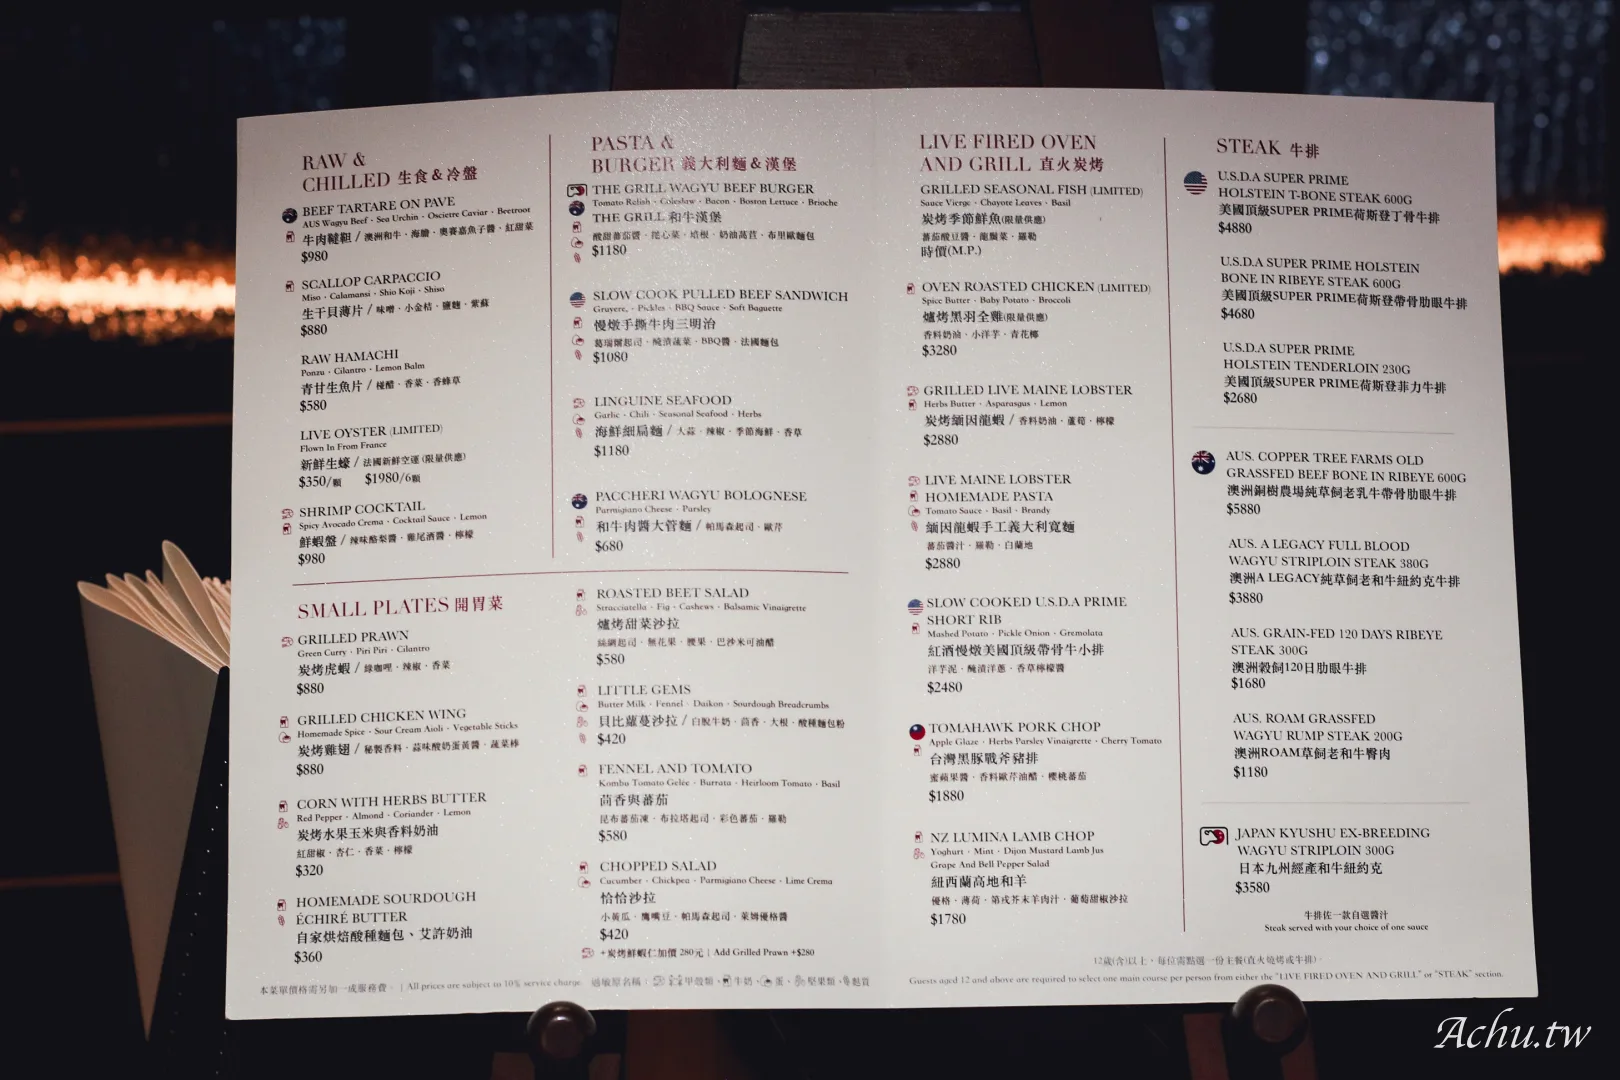 RAW &
CHILLED 生食&冷盤
BEEF TARTARE ON PAVE
AUS Wagyu Beef · Sea Urchin · Oscietre Caviar · Beetroot
牛肉韃靼 / 澳洲和牛 · 海膽 · 奧賽嘉魚子醬 · 紅甜菜
$980
SCALLOP CARPACCIO
Miso · Calamansi · Shio Koji · Shiso
生干貝薄片 / 味噌 · 小金桔 · 鹽麴 · 紫蘇
$880
RAW HAMACHI
Ponzu · Cilantro · Lemon Balm
青甘生魚片 / 椪醋 · 香菜 · 香蜂草
$580
LIVE OYSTER (LIMITED)
Flown In From France
新鮮生蠔 / 法國新鮮空運 (限量供應)
$350/顆 $1980/6顆
SHRIMP COCKTAIL
Spicy Avocado Crema · Cocktail Sauce · Lemon
鮮蝦盤 / 辣味酪梨醬 · 雞尾酒醬 · 檸檬
$980
PASTA &
BURGER 義大利麵&漢堡
THE GRILL WAGYU BEEF BURGER
Tomato Relish · Coleslaw · Bacon · Boston Lettuce · Brioche
THE GRILL 和牛漢堡
酸甜蕃茄醬 · 捲心菜 · 培根 · 奶油萵苣 · 布里歐麵包
$1180
SLOW COOK PULLED BEEF SANDWICH
Gruyere, · Pickles · BBQ Sauce · Soft Baguette
慢燉手撕牛肉三明治
葛瑞爾起司 · 醃漬蔬菜 · BBQ醬 · 法國麵包
$1080
LINGUINE SEAFOOD
Garlic · Chili · Seasonal Seafood · Herbs
海鮮細扁麵 / 大蒜 · 辣椒 · 季節海鮮 · 香草
$1180
PACCHERI WAGYU BOLOGNESE
Parmigiano Cheese · Parsley
和牛肉醬大管麵 / 帕馬森起司 · 歐芹
$680
SMALL PLATES 開胃菜
GRILLED PRAWN
Green Curry · Piri Piri · Cilantro
炭烤虎蝦 / 綠咖哩 · 辣椒 · 香菜
$880
GRILLED CHICKEN WING
Homemade Spice · Sour Cream Aioli · Vegetable Sticks
炭烤雞翅 / 秘製香料 · 蒜味酸奶蛋黃醬 · 蔬菜棒
$880
CORN WITH HERBS BUTTER
Red Pepper · Almond · Coriander · Lemon
炭烤水果玉米與香料奶油
紅甜椒 · 杏仁 · 香菜 · 檸檬
$320
HOMEMADE SOURDOUGH
ÉCHIRÉ BUTTER
自家烘焙酸種麵包、艾許奶油
$360
ROASTED BEET SALAD
Stracciatella · Fig · Cashews · Balsamic Vinaigrette
爐烤甜菜沙拉
絲綢起司 · 無花果 · 腰果 · 巴沙米可油醋
$580
LITTLE GEMS
Butter Milk · Fennel · Daikon · Sourdough Breadcrumbs
貝比蘿蔓沙拉 / 白脫牛奶 · 茴香 · 大根 · 酸種麵包粉
$420
FENNEL AND TOMATO
Kombu Tomato Gelée · Burrata · Heirloom Tomato · Basil
茴香與蕃茄
昆布蕃茄凍 · 布拉塔起司 · 彩色蕃茄 · 羅勒
$580
CHOPPED SALAD
Cucumber · Chickpea · Parmigiano Cheese · Lime Crema
恰恰沙拉
小黃瓜 · 鷹嘴豆 · 帕馬森起司 · 萊姆優格醬
$420
+炭烤鮮蝦仁加價 280元 | Add Grilled Prawn +$280
本菜單價格需另加一成服務費。 | All prices are subject to 10% service charge 過敏原名稱：甲殼類、牛奶、蛋、堅果類、麩質
LIVE FIRED OVEN
AND GRILL 直火炭烤
GRILLED SEASONAL FISH (LIMITED)
Sauce Vierge · Chayote Leaves · Basil
炭烤季節鮮魚(限量供應)
蕃茄酸豆醬 · 龍鬚菜 · 羅勒
時價(M.P.)
OVEN ROASTED CHICKEN (LIMITED)
Spice Butter · Baby Potato · Broccoli
爐烤黑羽全雞(限量供應)
香料奶油 · 小洋芋 · 青花椰
$3280
GRILLED LIVE MAINE LOBSTER
Herbs Butter · Asparagus · Lemon
炭烤緬因龍蝦 / 香料奶油 · 蘆筍 · 檸檬
$2880
LIVE MAINE LOBSTER
HOMEMADE PASTA
Tomato Sauce · Basil · Brandy
緬因龍蝦手工義大利寬麵
蕃茄醬汁 · 羅勒 · 白蘭地
$2880
SLOW COOKED U.S.D.A PRIME
SHORT RIB
Mashed Potato · Pickle Onion · Gremolata
紅酒慢燉美國頂級帶骨牛小排
洋芋泥 · 醃漬洋蔥 · 香草檸檬醬
$2480
TOMAHAWK PORK CHOP
Apple Glaze · Herbs Parsley Vinaigrette · Cherry Tomato
台灣黑豚戰斧豬排
蜜蘋果醬 · 香料歐芹油醋 · 櫻桃蕃茄
$1880
NZ LUMINA LAMB CHOP
Yoghurt · Mint · Dijon Mustard Lamb Jus
Grape And Bell Pepper Salad
紐西蘭高地和羊
優格 · 薄荷 · 第戎芥末羊肉汁 · 葡萄甜椒沙拉
$1780
STEAK 牛排
U.S.D.A SUPER PRIME
HOLSTEIN T-BONE STEAK 600G
美國頂級SUPER PRIME荷斯登丁骨牛排
$4880
U.S.D.A SUPER PRIME HOLSTEIN
BONE IN RIBEYE STEAK 600G
美國頂級SUPER PRIME荷斯登帶骨肋眼牛排
$4680
U.S.D.A SUPER PRIME
HOLSTEIN TENDERLOIN 230G
美國頂級SUPER PRIME荷斯登菲力牛排
$2680
AUS. COPPER TREE FARMS OLD
GRASSFED BEEF BONE IN RIBEYE 600G
澳洲銅樹農場純草飼老乳牛帶骨肋眼牛排
$5880
AUS. A LEGACY FULL BLOOD
WAGYU STRIPLOIN STEAK 380G
澳洲A LEGACY純草飼老和牛紐約克牛排
$3880
AUS. GRAIN-FED 120 DAYS RIBEYE
STEAK 300G
澳洲穀飼120日肋眼牛排
$1680
AUS. ROAM GRASSFED
WAGYU RUMP STEAK 200G
澳洲ROAM草飼老和牛臀肉
$1180
JAPAN KYUSHU EX-BREEDING
WAGYU STRIPLOIN 300G
日本九州經產和牛紐約克
$3580
牛排佐一款自選醬汁
Steak served with your choice of one sauce
12歲(含)以上，每位需點選一份主餐(直火燒烤或牛排)
Guests aged 12 and above are required to select one main course per person from either the "LIVE FIRED OVEN AND GRILL" or "STEAK" section.
Achu.tw